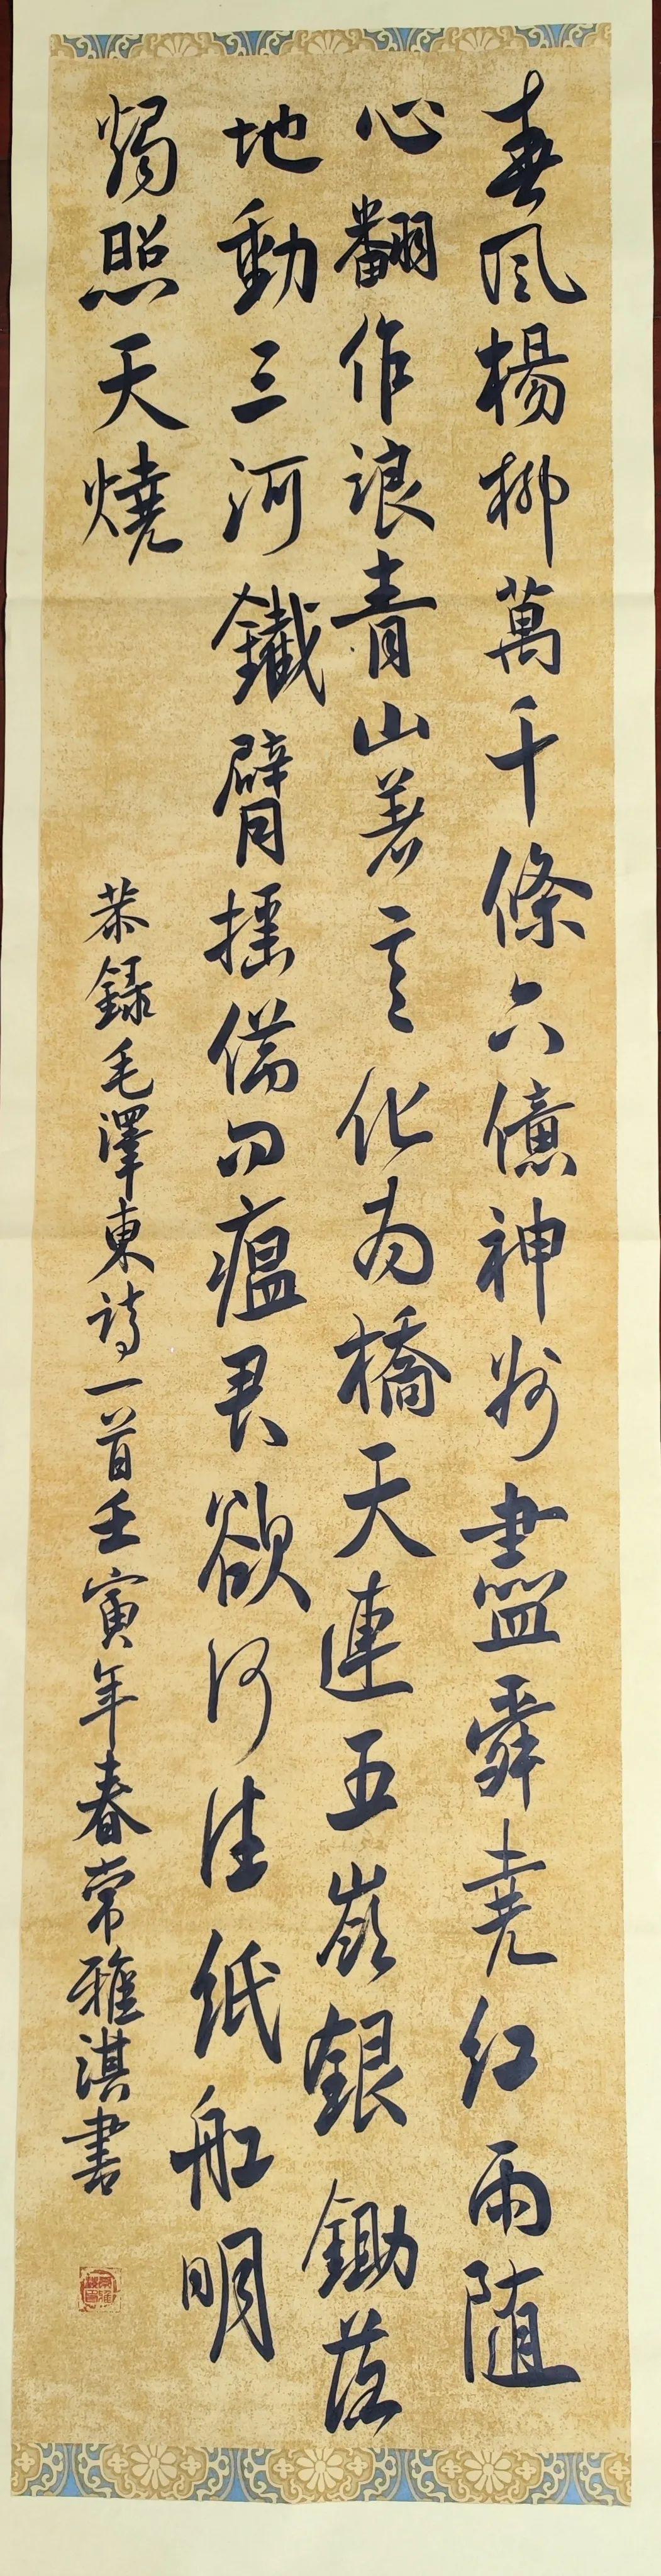 春風楊柳萬千條六億神州盡舜堯紅雨随
心翻作浪青山著意化為橋天連五嶺銀鋤落
地動三河鐵臂摇借问瘟君欲何往紙船明
燭照天燒
恭録毛澤東詩一首壬寅年春常雅淇書